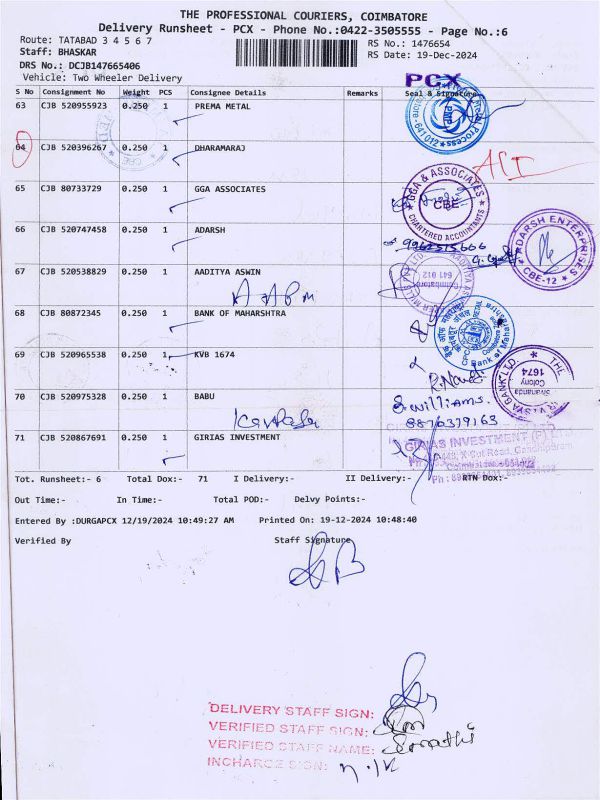 THE PROFESSIONAL COURIERS, COIMBATORE
Delivery Runsheet - PCX - Phone No.:0422-3505555 - Page No.:6
Route: TATABAD 3 4 5 6 7
RS No.: 1476654
Staff: BHASKAR
RS Date: 19-Dec-2024
DRS No.: DCJB147665406
Vehicle: Two Wheeler Delivery
PCX
S No Consignment No Weight PCS Consignee Details Remarks Seal & Signature
63 CJB 520955923 0.250 1 PREMA METAL
64 CJB 520396267 0.250 1 DHARAMARAJ
65 CJB 80733729 0.250 1 GGA ASSOCIATES
GGA & ASSOCIATES
CBE
CHARTERED ACCOUNTANTS
66 CJB 520747458 0.250 1 ADARSH
ADARSH ENTERPRISES
CBE-12
67 CJB 520538829 0.250 1 AADITYA ASWIN
641 012
68 CJB 80872345 0.250 1 BANK OF MAHARSHTRA
69 CJB 520965538 0.250 1 KVB 1674
THE
VYSYA BANK LTD.
Sivananda
Colony
1674
70 CJB 520975328 0.250 1 BABU
S.williams.
8876379163
71 CJB 520867691 0.250 1 GIRIAS INVESTMENT
GIRIAS INVESTMENT (P) LTD
Tot. Runsheet:- 6 Total Dox:- 71 I Delivery:- II Delivery:- RTN Dox:-
Out Time:- In Time:- Total POD:- Delvy Points:-
Entered By :DURGAPCX 12/19/2024 10:49:27 AM Printed On: 19-12-2024 10:48:40
Verified By Staff Signature
DELIVERY STAFF SIGN:
VERIFIED STAFF SIGN:
VERIFIED STAFF NAME:
INCHARGE SIGN: